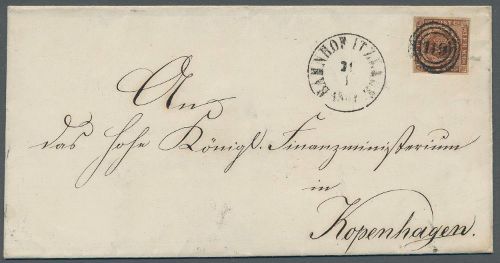 BAHNHOF ITZEHOE
21
1
An
das hohe Königl. Finanzministerium
in
Kopenhagen.